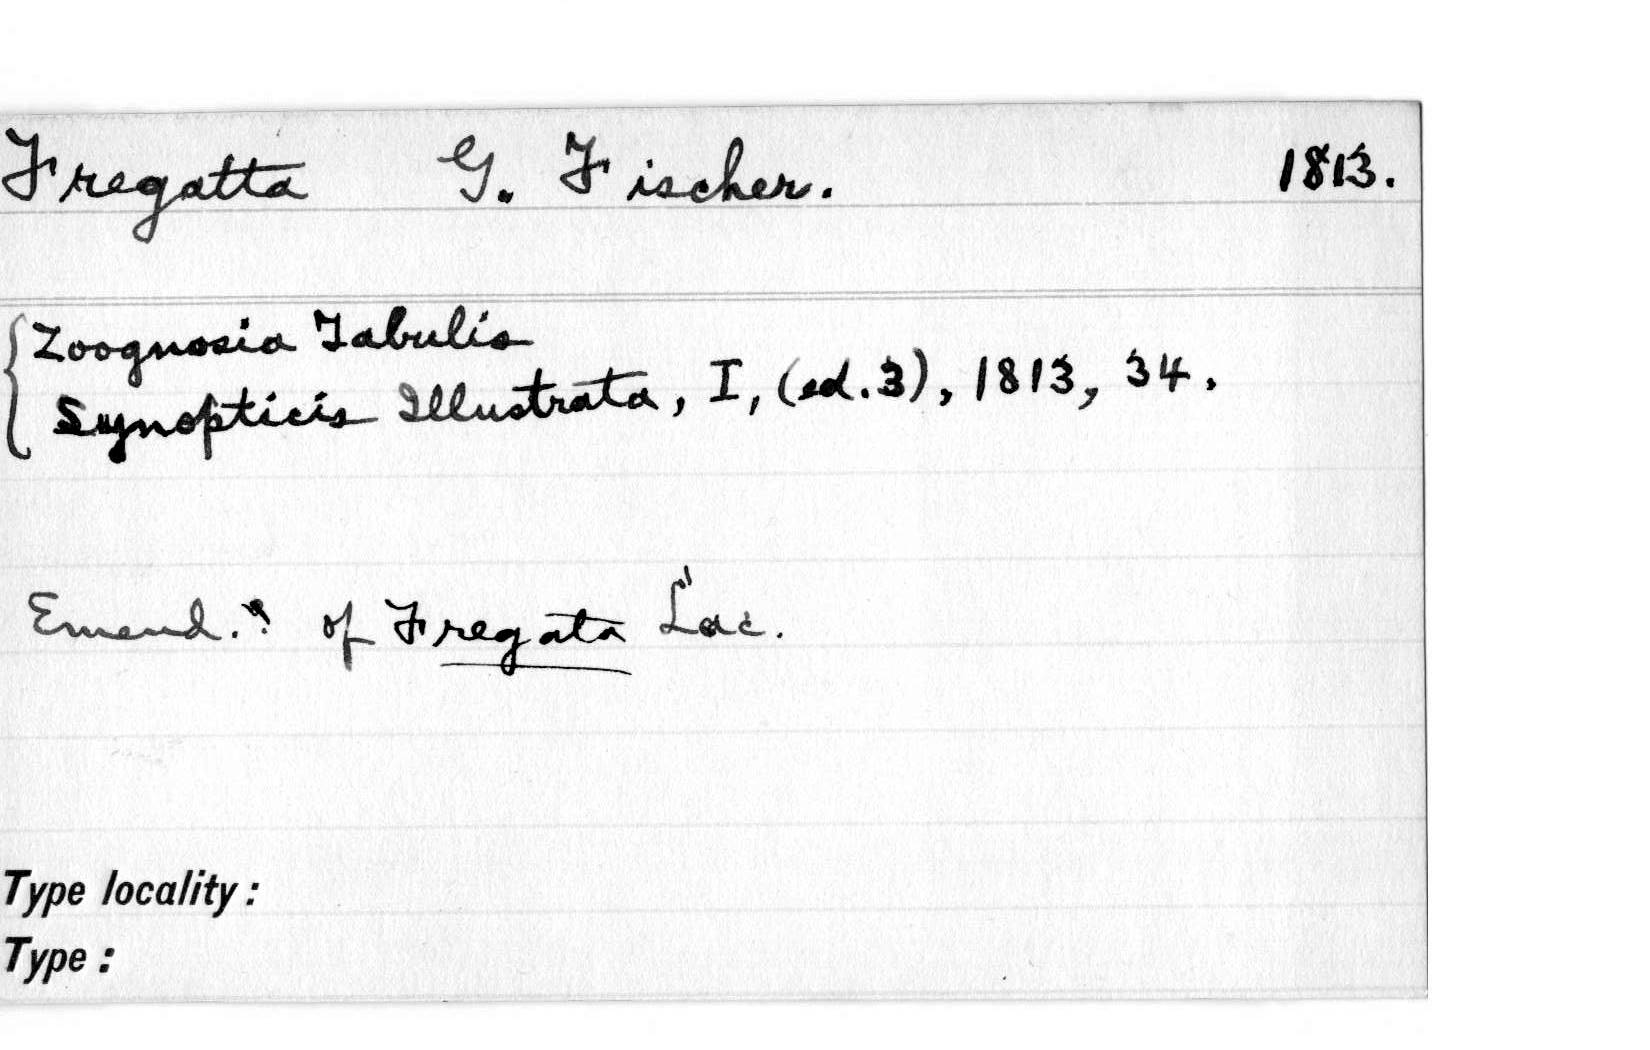 Fregatta G. Fischer. 1813.
Zoognosia Tabulis
Synopticis Illustrata, I, (ed. 3), 1813, 34.
Emend.? of Fregata Lac.
Type locality:
Type: